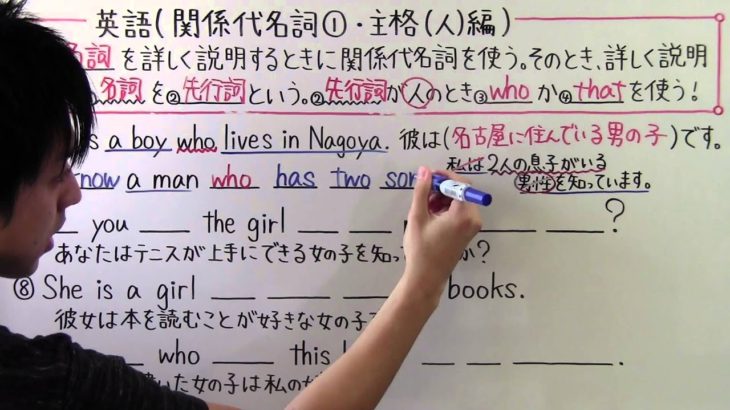 英語(関係代名詞①・主格(人)編)
名詞を詳しく説明するときに関係代名詞を使う。そのとき、詳しく説明
名詞を②先行詞という。②先行詞が人のとき③whoか④thatを使う!
a boy who lives in Nagoya. 彼は(名古屋に住んでいる男の子)です。
know a man who has two 私は2人の息子がいる
男性を知っています。
you the girl ?
あなたはテニスが上手にできる女の子を知っ か?
⑧ She is a girl books.
彼女は本を読むことが好きな女の子
who this .
いた女の子は私の